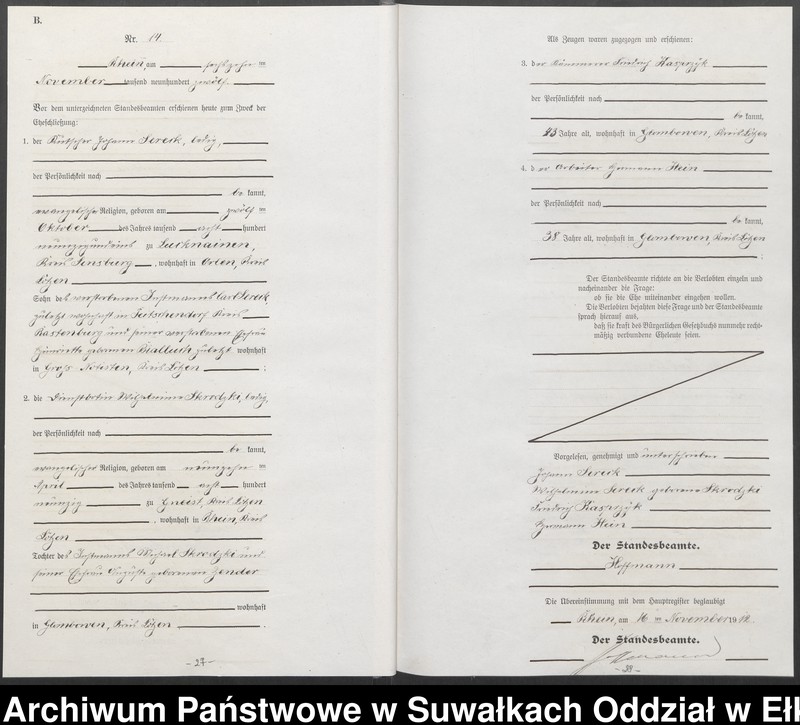 B.
Nr. 14.
Rhein, am sechszehn ten
November tausend neunhundert zwölf
Vor dem unterzeichneten Standesbeamten erschienen heute zum Zweck der
Eheschließung:
1. der Kutscher Johann Sereik, ledig,
der Persönlichkeit nach
be kannt,
evangelische Religion, geboren am zwölf ten
Oktober des Jahres tausend acht hundert
neunzigundeins zu Lucknainen,
Kreis Sensburg, wohnhaft in Orlen, Kreis
Lötzen
Sohn des verstorbenen Instmanns Carl Sereik
zuletzt wohnhaft in Kreis
Rastenburg und seiner verstorbenen Ehefrau
Henriette geborenen zuletzt wohnhaft
in Groß Notisten, Kreis Lötzen ;
2. die Dienstbotin Wilhelmine Skrodzki, ledig,
der Persönlichkeit nach
be kannt,
evangelischer Religion, geboren am neunzehn ten
April des Jahres tausend acht hundert
neunzig zu Gneist, Kreis Lötzen
, wohnhaft in Rhein, Kreis
Lötzen
Tochter des Instmanns Michael Skrodzki und
seiner Ehefrau Auguste geborenen Zender
wohnhaft
in Glombowen, Kreis Lötzen .
- 27 -
Als Zeugen waren zugezogen und erschienen:
3. der Kämmerer Friedrich Kasprzyk
der Persönlichkeit nach
be kannt,
43 Jahre alt, wohnhaft in Glombowen, Kreis Lötzen
4. der Arbeiter Hermann Hein
der Persönlichkeit nach
be kannt,
38 Jahre alt, wohnhaft in Glombowen, Kreis Lötzen
;
Der Standesbeamte richtete an die Verlobten einzeln und
nacheinander die Frage:
ob sie die Ehe miteinander eingehen wollen.
Die Verlobten bejahten diese Frage und der Standesbeamte
sprach hierauf aus,
daß sie kraft des Bürgerlichen Gesetzbuchs nunmehr recht-
mäßig verbundene Eheleute seien.
Vorgelesen, genehmigt und unterschrieben
Johann Sereik
Wilhelmine Sereik geborene Skrodzki
Friedrich Kasprzyk
Hermann Hein
Der Standesbeamte.
Hoffmann
Die Übereinstimmung mit dem Hauptregister beglaubigt
Rhein, am 16 ten November 1912.
Der Standesbeamte.
Hoffmann
- 28 -
Archiwum Państwowe w Suwałkach Oddział w Eł